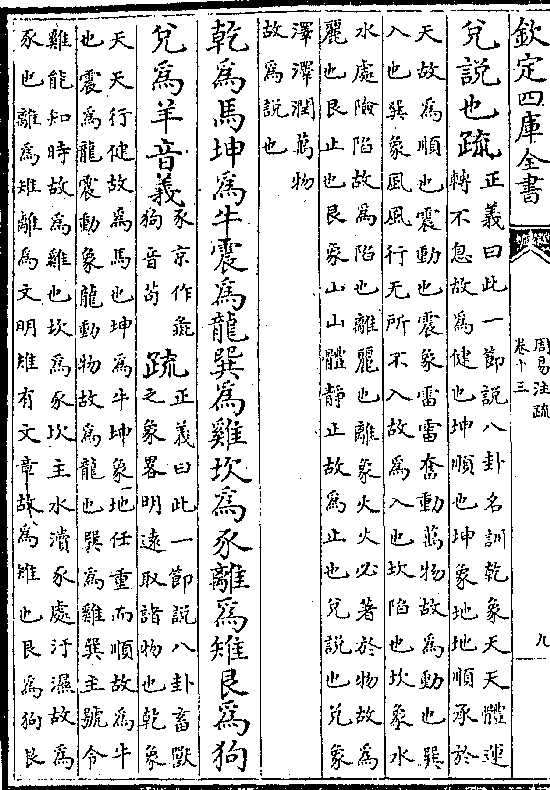 欽定四庫全書
周易注疏
卷十三
九
兌說也疏
正義曰此一節說八卦名訓乾象天天體運
轉不息故為健也坤順也坤象地地順承於
天故為順也震動也震象雷雷奮動萬物故為動也巽
入也巽象風風行无所不入故為入也坎陷也坎象水
水處險陷故為陷也離麗也離象火火必著於物故為
麗也艮止也艮象山山體靜止故為止也兌說也兌象
澤澤潤萬物
故為說也
乾為馬坤為牛震為龍巽為雞坎為豕離為雉艮為狗
兌為羊音義
豕京作彘
狗音苟
疏
正義曰此一節說八卦畜獸
之象畧明遠取諸物也乾象
天天行健故為馬也坤為牛坤象地任重而順故為牛
也震為龍震動象龍動物故為龍也巽為雞巽主號令
雞能知時故為雞也坎為豕坎主水瀆豕處汙濕故為
豕也離為雉離為文明雉有文章故為雉也艮為狗艮